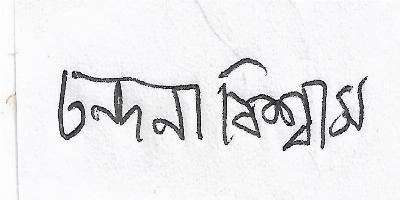 চন্দনা বিশ্বাস